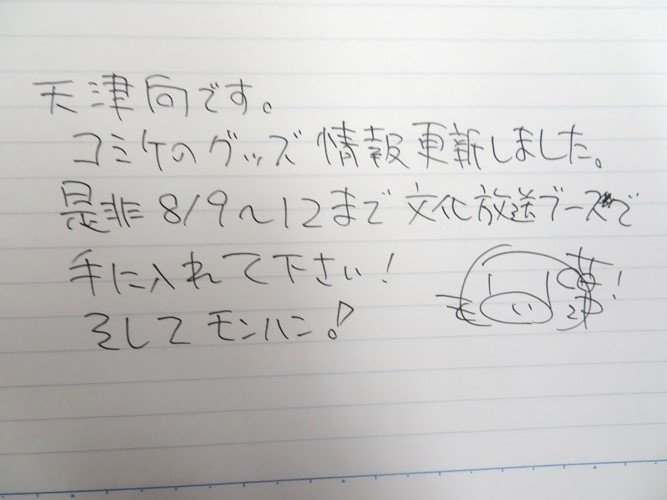 天津向です。
コミケのグッズ情報更新しました。
是非8/9〜12まで文化放送ブースで
手に入れて下さい!
そしてモンハン。!